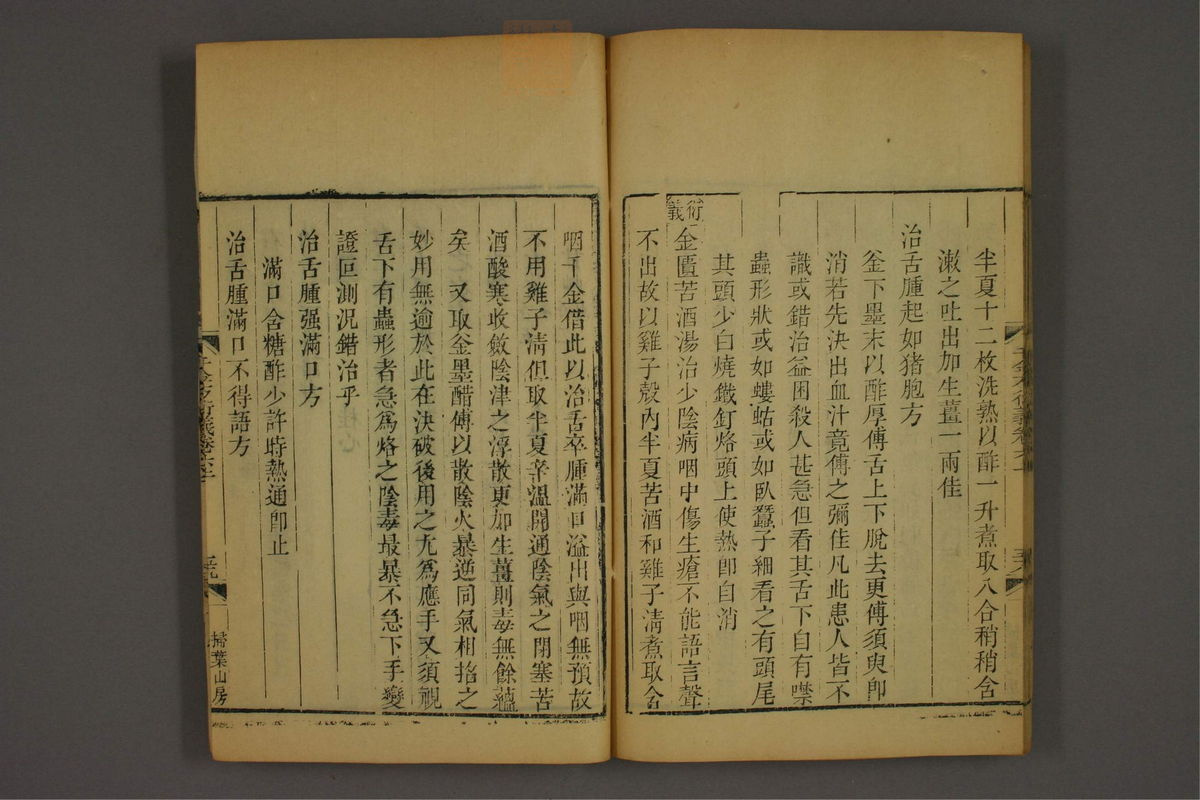 半夏十二枚洗熱以酢一升煮取八合稍稍含
漱之吐出加生薑一兩佳
治舌腫起如猪胞方
釜下墨末以酢厚傅舌上下脫去更傅須臾即
消若先決出血汁竟傅之彌佳凡此患人皆不
識或錯治益困殺人甚急但看其舌下自有噤
蟲形狀或如螻蛄或如臥蠶子細看之有頭尾
其頭少白燒鐵釘烙頭上使熱即自消
衍義
金匱苦酒湯治少陰病咽中傷生瘡不能語言聲
不出故以雞子殼內半夏苦酒和雞子清煮取含
咽千金借此以治舌卒腫滿口溢出與咽無預故
不用雞子清但取半夏辛溫開通陰氣之閉塞苦
酒酸寒收斂陰津之浮散更加生薑則毒無餘蘊
矣又取釜墨醋傅以散陰火暴逆同氣相搯之
妙用無逾於此在決破後用之尤為應手又須覷
舌下有蟲形者急為烙之陰毒最暴不急下手變
證叵測況錯治乎
治舌腫强滿口方
滿口含糖酢少許時熱通即止
治舌腫滿口不得語方
掃葉山房